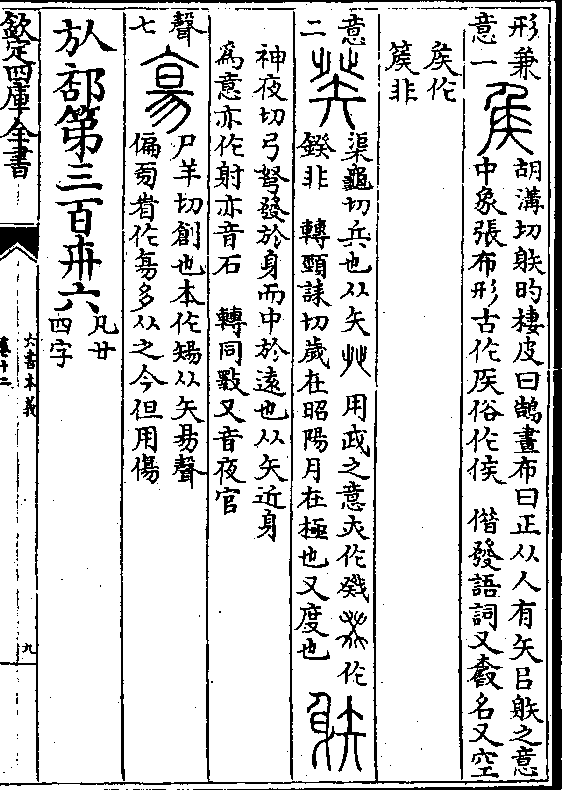 形兼
意一
矦
胡溝切躲旳棲皮曰鵠畫布曰正从人有矢㠯躲之意
中象張布形古作𥎦俗作侯 借發語詞又爵名又空
矦作
篌非
意
二
癸
渠龜切兵也从矢癶用戍之意夾作癸𤼩作
鍨非 轉頸誄切歲在昭陽月在極也又度也
躲
神夜切弓弩發於身而中於遠也从矢近身
爲意亦作射亦音石 轉同斁又音夜官
聲
七
尸羊切創也本作𥏻从矢昜聲
偏𦭝省作昜多从之今但用傷
㫃部第三百卅六
凡廿
四字
欽定四庫全書
六書本義
卷十二
九